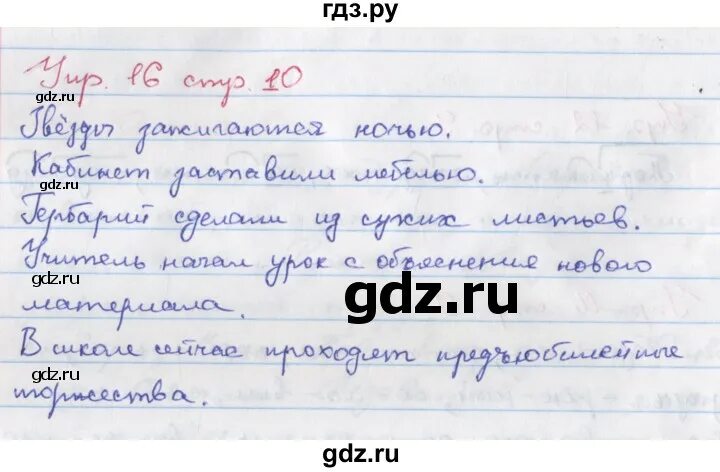 гдз.ру
Упр. 16 стр. 10
gdz.ru
Звёзды зажигаются ночью.
gdz.ru
Кабинет заставили мебелью.
gdz.ru
Гербарий сделали из сухих листьев.
gdz.ru
Учитель начал урок с объяснения нового
gdz.ru
материала.
gdz.ru
В школе сейчас проходят предъюбилейные
gdz.ru
торжества.
gdz.ru
gdz.ru